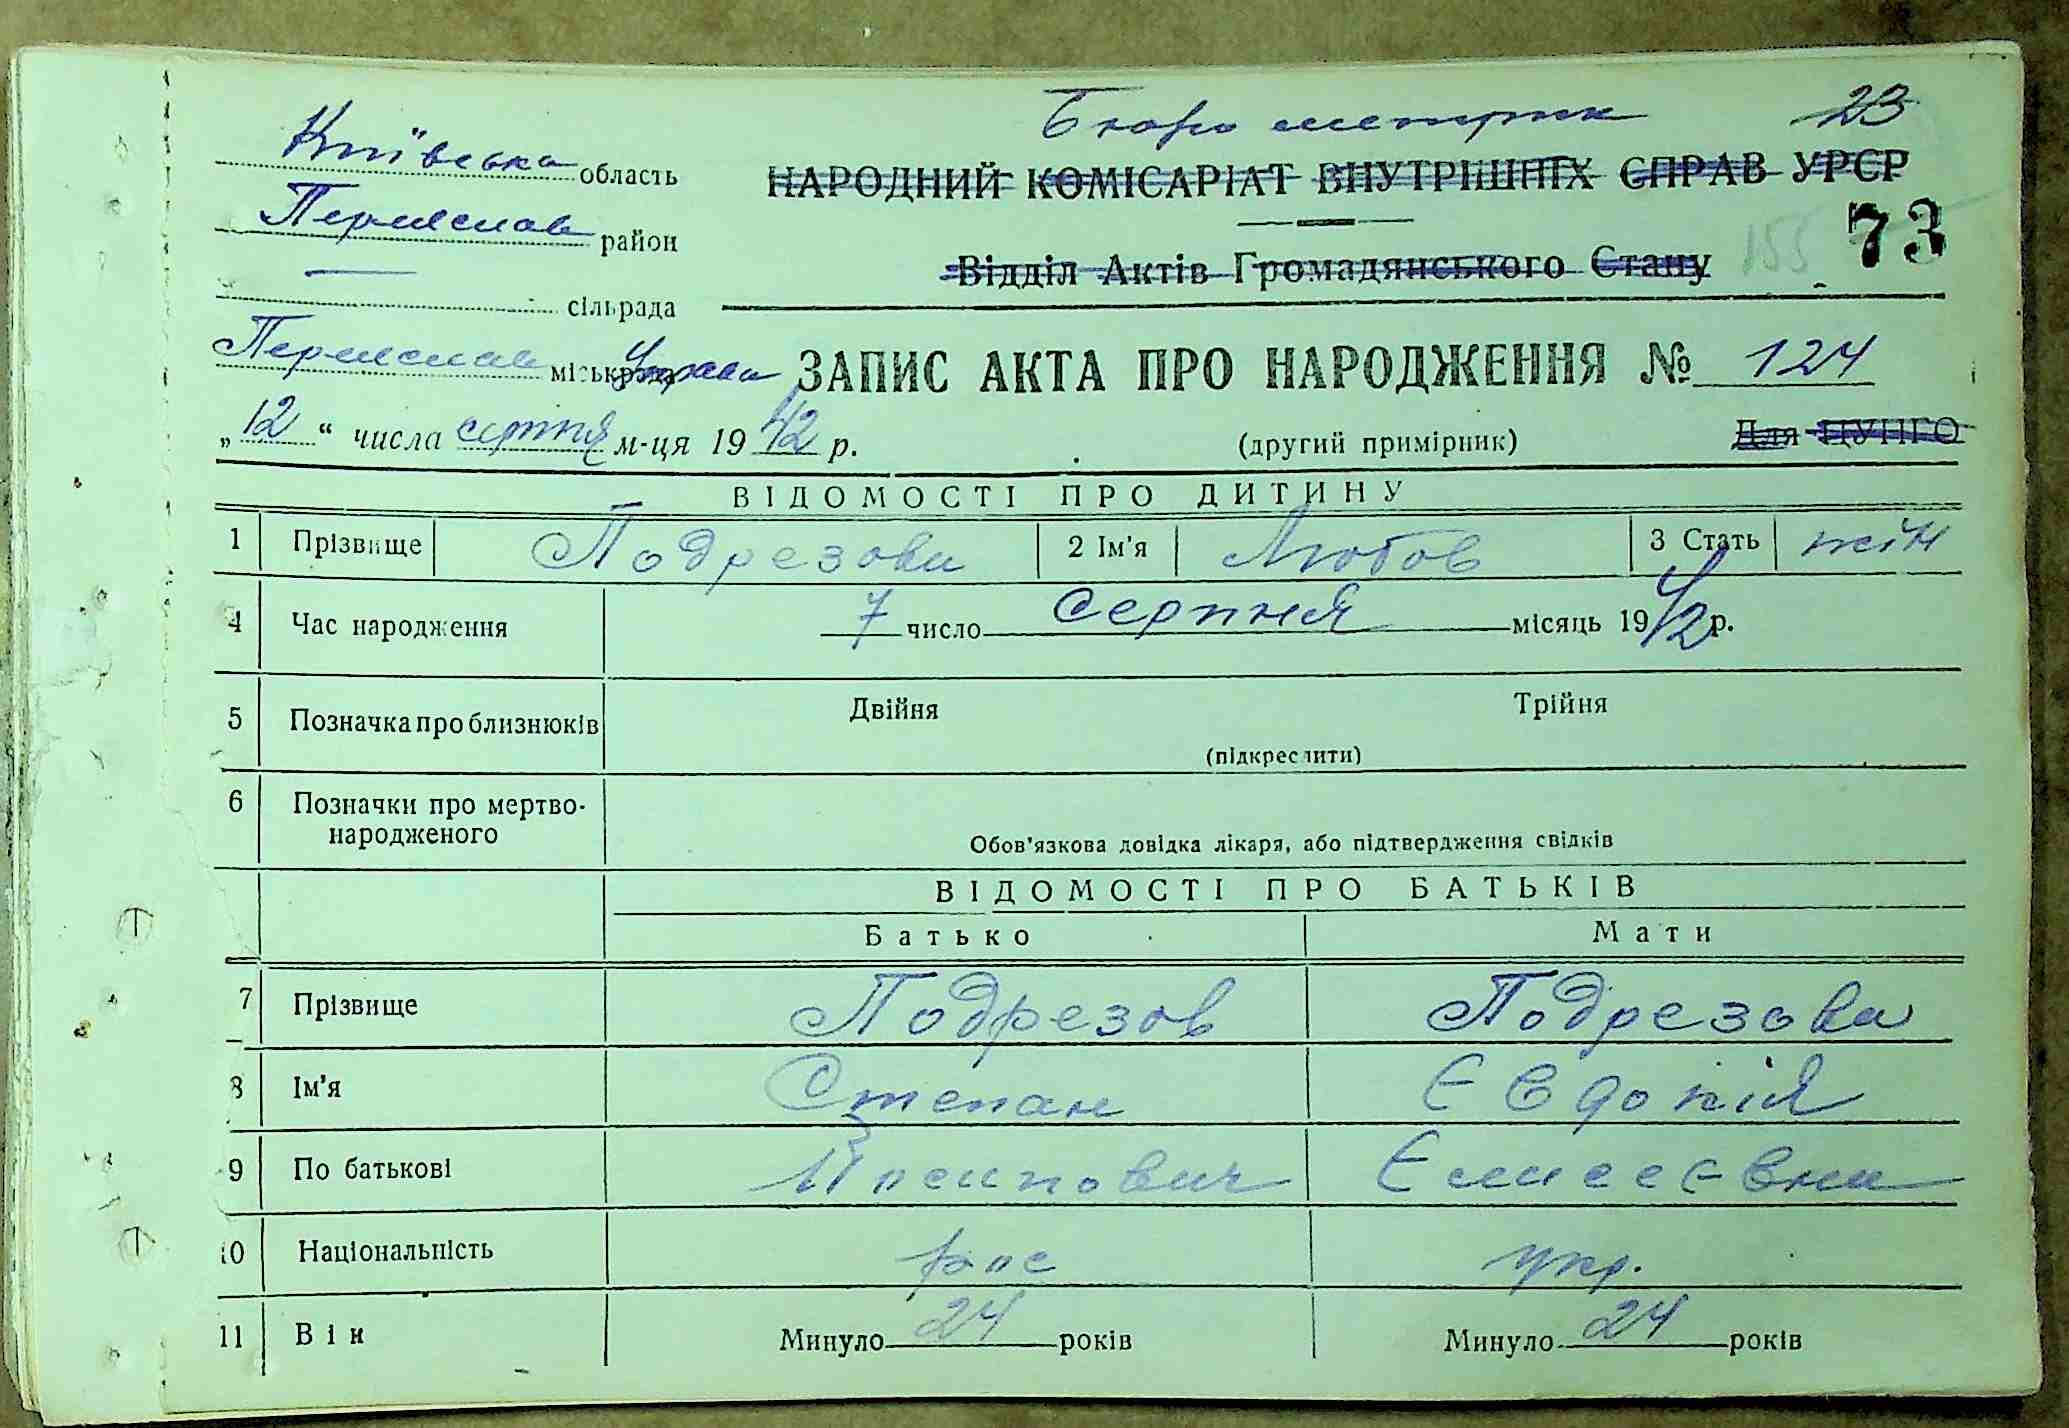 Бюро метрик 23
Київська область
НАРОДНИЙ КОМІСАРІАТ ВНУТРІШНІХ СПРАВ УРСР
Переяслав район
155 73
Відділ Актів Громадянського Стану
сільрада
Переяслав міськрада Управа ЗАПИС АКТА ПРО НАРОДЖЕННЯ № 124
„12“ числа серпня м-ця 1942 р. (другий примірник) Для ЦУНГО
ВІДОМОСТІ ПРО ДИТИНУ
1 Прізвище Подрезова 2 Ім'я Любов 3 Стать жін
4 Час народження 7 число серпня місяць 1942 р.
5 Позначка про близнюків Двійня Трійня
(підкреслити)
6 Позначки про мертво-
народженого
Обов'язкова довідка лікаря, або підтвердження свідків
ВІДОМОСТІ ПРО БАТЬКІВ
Батько Мати
7 Прізвище Подрезов Подрезова
8 Ім'я Степан Євдокія
9 По батькові Йосипович Єлисеєвна
10 Національність рос укр.
11 Вік Минуло 24 років Минуло 24 років